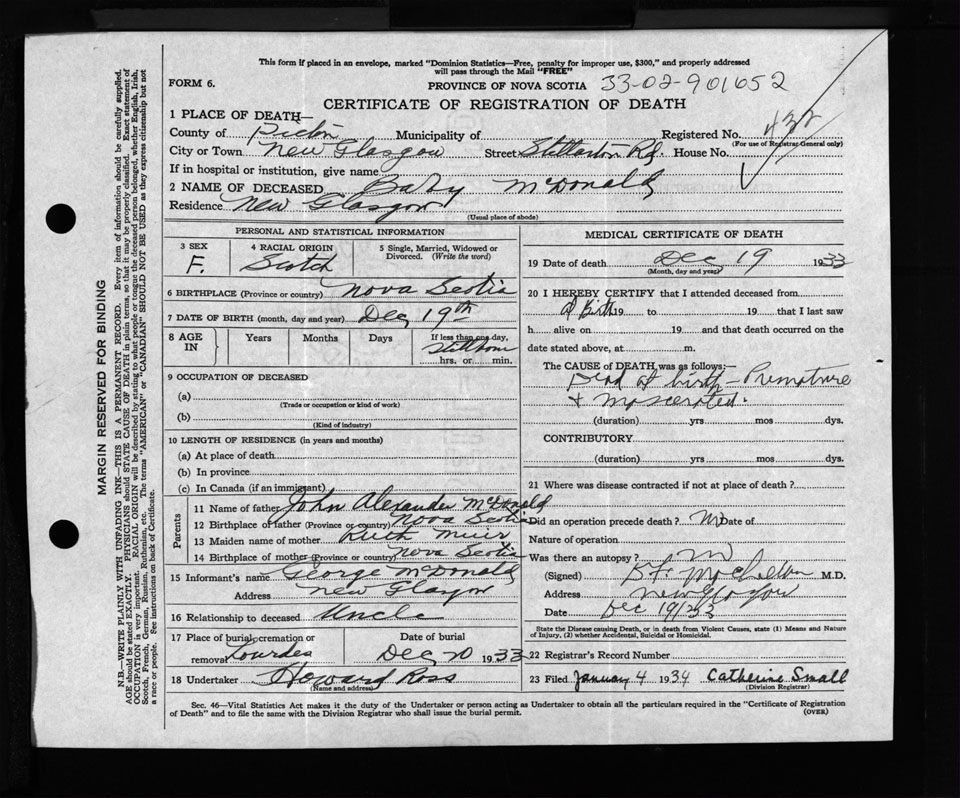 This form if placed in an envelope, marked "Dominion Statistics—Free, penalty for improper use, $300," and properly addressed
will pass through the Mail "FREE"
FORM 6.
PROVINCE OF NOVA SCOTIA 33-02-901652
CERTIFICATE OF REGISTRATION OF DEATH
1 PLACE OF DEATH—
County of Pictou Municipality of Registered No. 432
(For use of Registrar General only)
City or Town New Glasgow Street Stellarton Rd. House No.
If in hospital or institution, give name
2 NAME OF DECEASED Baby McDonald
Residence New Glasgow
(Usual place of abode)
PERSONAL AND STATISTICAL INFORMATION
3 SEX F.
4 RACIAL ORIGIN Scotch
5 Single, Married, Widowed or Divorced. (Write the word)
6 BIRTHPLACE (Province or country) Nova Scotia
7 DATE OF BIRTH (month, day and year) Dec 19th
8 AGE IN Years Months Days If less than one day, Stillborn hrs. or min.
9 OCCUPATION OF DECEASED
(a)
(Trade or occupation or kind of work)
(b)
(Kind of industry)
10 LENGTH OF RESIDENCE (in years and months)
(a) At place of death
(b) In province
(c) In Canada (if an immigrant)
Parents
11 Name of father John Alexander McDonald
12 Birthplace of father (Province or country) Nova Scotia
13 Maiden name of mother Ruth Muir
14 Birthplace of mother (Province or country) Nova Scotia
15 Informant's name George McDonald
Address New Glasgow
16 Relationship to deceased Uncle
17 Place of burial, cremation or removal Lourdes
Date of burial Dec 20 1933
18 Undertaker Howard Ross
(Name and address)
MEDICAL CERTIFICATE OF DEATH
19 Date of death Dec 19 1933
(Month, day and year)
20 I HEREBY CERTIFY that I attended deceased from
at Birth 19 to 19 that I last saw
h alive on 19 and that death occurred on
date stated above, at m.
The CAUSE of DEATH was as follows:—
Dead at birth - Premature
& Mascerated.
(duration) yrs mos dys.
CONTRIBUTORY
(duration) yrs mos dys.
21 Where was disease contracted if not at place of death?
Did an operation precede death? No Date of
Nature of operation
Was there an autopsy? No
(Signed) M.D.
Address New Glasgow
Date Dec 19/33
State the Disease causing Death, or in death from Violent Causes, state (1) Means and Nature
of Injury, (2) whether Accidental, Suicidal or Homicidal.
22 Registrar's Record Number
23 Filed January 4 1934 Catherine Small
(Division Registrar)
Sec. 46—Vital Statistics Act makes it the duty of the Undertaker or person acting as Undertaker to obtain all the particulars required in the "Certificate of Registration
of Death" and to file the same with the Division Registrar who shall issue the burial permit.
(OVER)
MARGIN RESERVED FOR BINDING
N.B.—WRITE PLAINLY WITH UNFADING INK—THIS IS A PERMANENT RECORD. Every item of information should be carefully supplied.
AGE should be stated EXACTLY. PHYSICIANS should STATE CAUSE OF DEATH in plain terms, so that it may be properly classified. Exact statement of
OCCUPATION is very important. RACIAL ORIGIN will be described by stating to what people or tongue the deceased person belonged, whether English, Irish,
Scotch, French, German, Russian, Ruthenian, etc. The terms "AMERICAN" or "CANADIAN" SHOULD NOT BE USED as they express citizenship but not
a race or people. See instructions on back of Certificate.